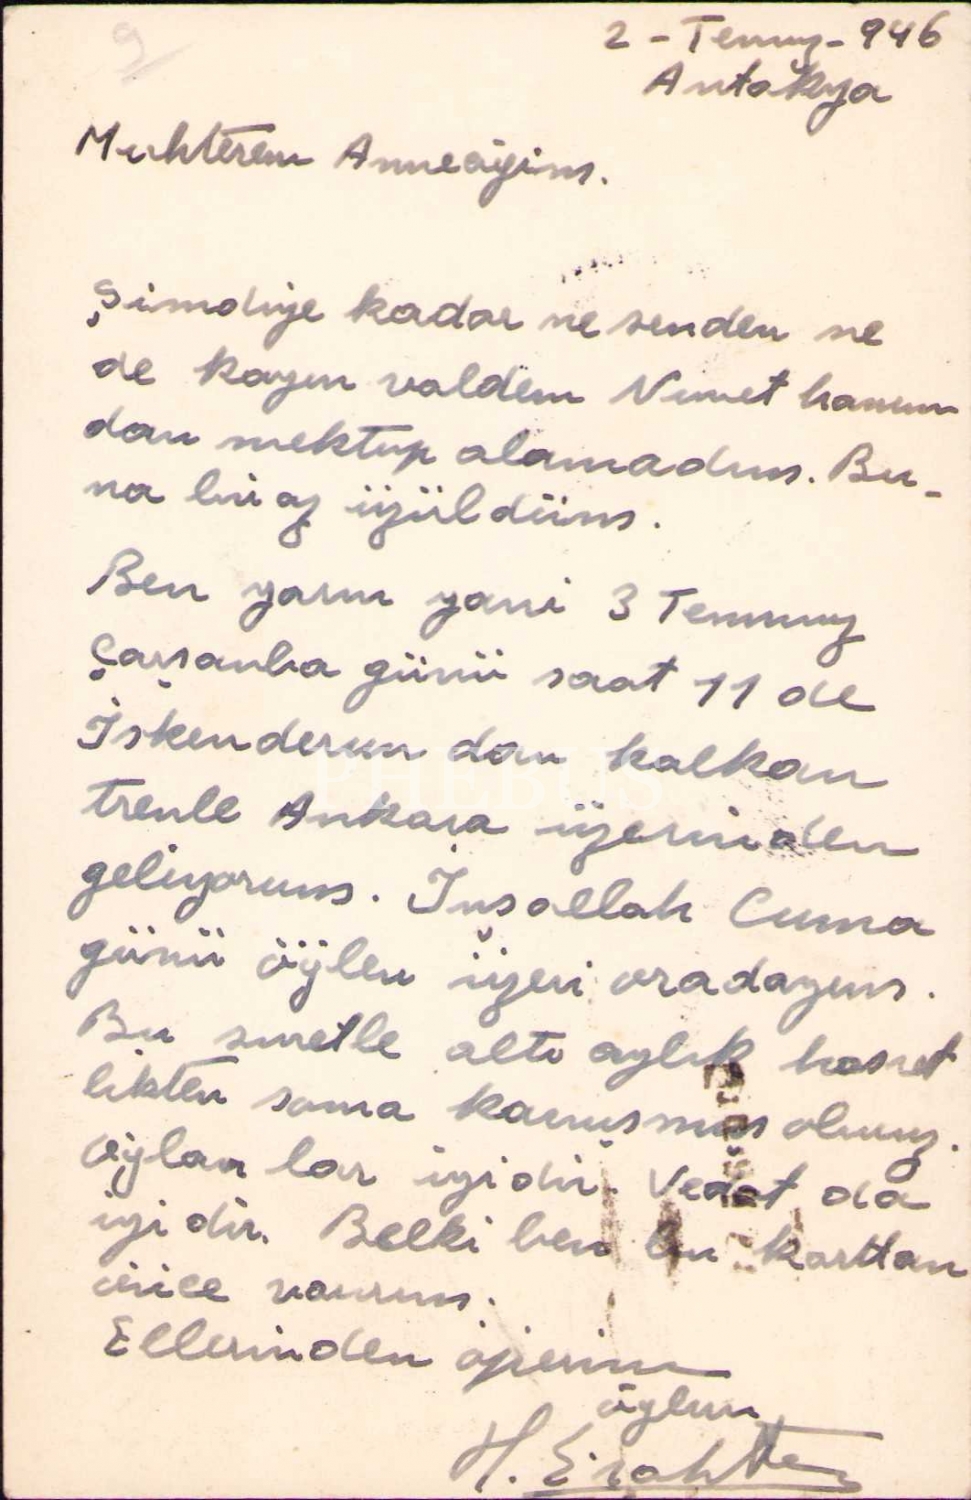 9
2 - Temmuz - 946
Antakya
Muhterem Anneciğim.
Şimdiye kadar ne senden ne
de kayın valdem Nimet hanım
dan mektup alamadım. Bu-
na bir az üzüldüm.
Ben yarın yani 3 Temmuz
Çarşanba günü saat 11 de
İskenderun dan kalkan
trenle Ankara üzerinden
geliyorum. İnşallah Cuma
günü öğlen üzeri oradayım.
Bu suretle altı aylık hasret
likten sonra kavuşmuş oluruz.
Oğlan lar iyi dir. Vedat da
iyi dir. Belki ben bu karttan
önce varırım.
Ellerinden öperim
oğlun
H.
PHEBUS